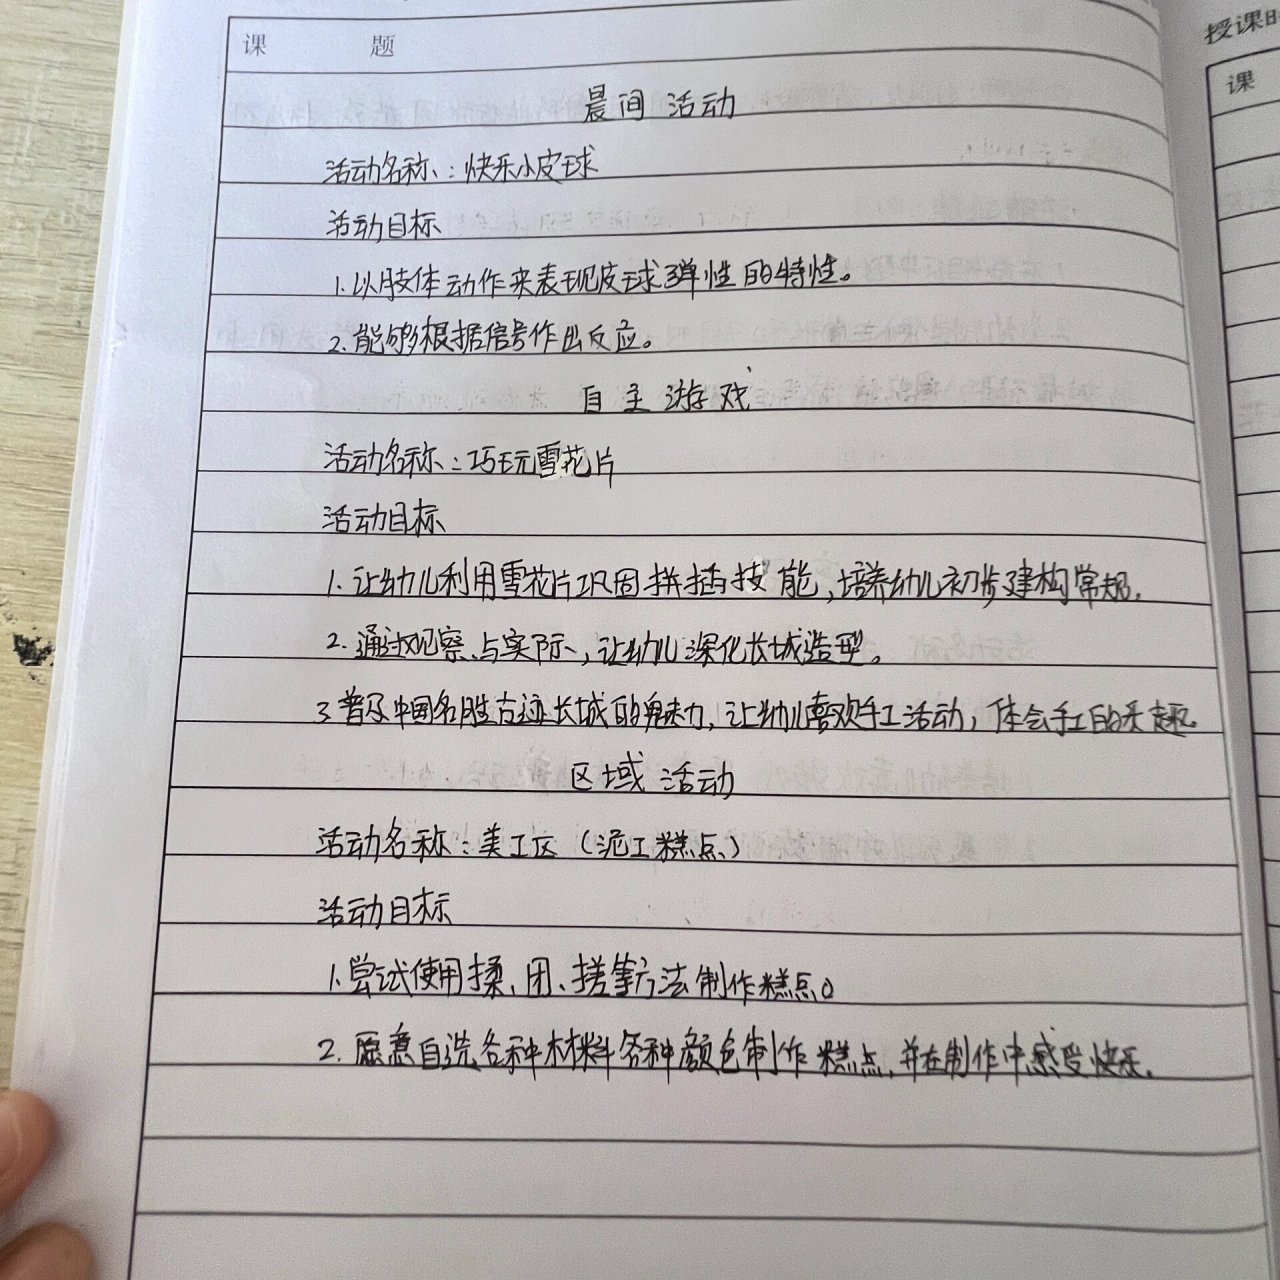 课 题
晨间活动
活动名称：快乐小皮球
活动目标
1.以肢体动作来表现皮球弹性的特性。
2.能够根据信号作出反应。
自主游戏
活动名称：巧玩雪花片
活动目标
1.让幼儿利用雪花片巩固拼插技能，培养幼儿初步建构常规。
2.通过观察与实际，让幼儿深化长城造型。
3普及中国名胜古迹长城的魅力，让幼儿喜欢手工活动，体会手工的乐趣。
区域活动
活动名称：美工区（泥工糕点）
活动目标
1.尝试使用揉、团、搓等方法制作糕点。
2.愿意自选各种材料各种颜色制作糕点，并在制作中感受快乐。
授课时
课